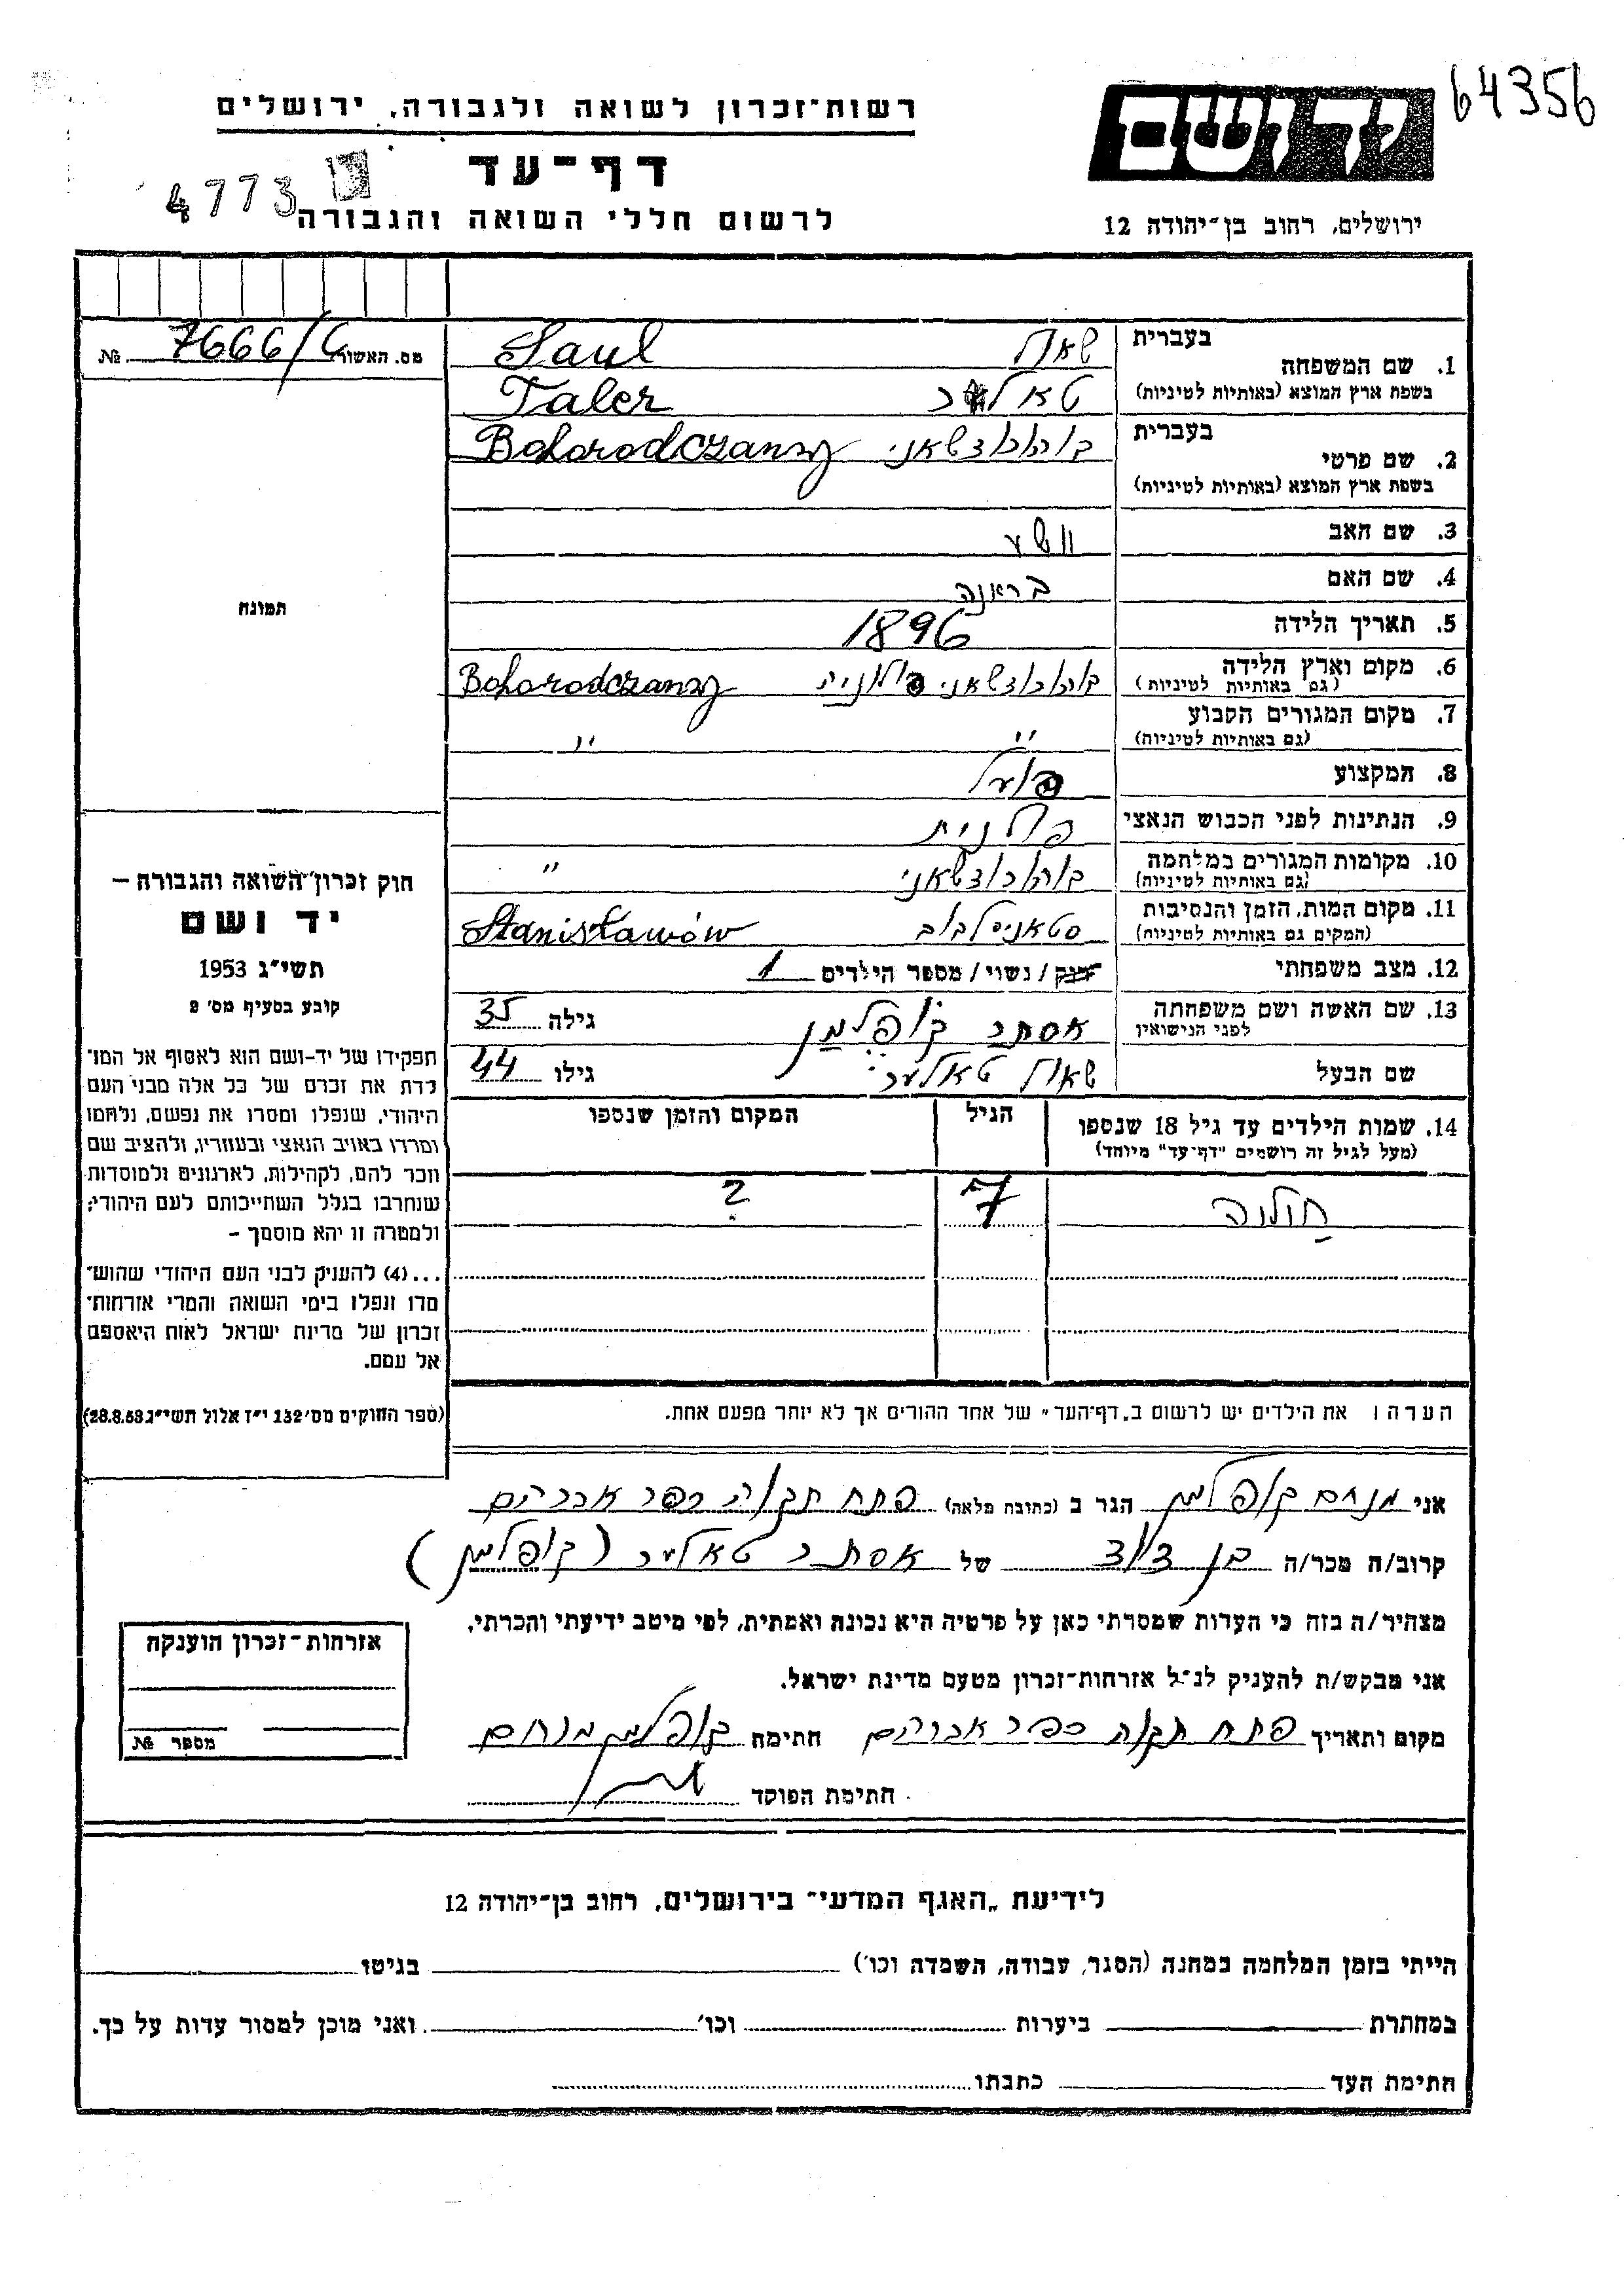 64356
יד ושם
רשות־זכרון לשואה ולגבורה, ירושלים
דף־עד
4773
לרשום חללי השואה והגבורה
ירושלים, רחוב בן־יהודה 12
מס. האשור 7666/G №
1. שם המשפחה בעברית שאול Saul
בשפת ארץ המוצא (באותיות לטיניות) טאלער Taler
2. שם פרטי בעברית Bohorodczany
בשפת ארץ המוצא (באותיות לטיניות)
3. שם האב
4. שם האם בראנה
5. תאריך הלידה 1896
6. מקום וארץ הלידה
(גם באותיות לטיניות) פולנית Bohorodczany
7. מקום המגורים הקבוע
(גם באותיות לטיניות) " "
8. המקצוע פועל
9. הנתינות לפני הכבוש הנאצי פולנית
10. מקומות המגורים במלחמה
(גם באותיות לטיניות) "
11. מקום המות, הזמן והנסיבות
(המקום גם באותיות לטיניות) Stanisławów
12. מצב משפחתי רווק / נשוי / מספר הילדים 1
13. שם האשה ושם משפחתה
לפני הנישואין אסתר קופלמן גילה 35
שם הבעל שאול טאלער גילו 44
14. שמות הילדים עד גיל 18 שנספו הגיל המקום והזמן שנספו
(מעל לגיל זה רושמים "דף־עד" מיוחד)
7 ?
הערה: את הילדים יש לרשום ב„דף־העד" של אחד ההורים אך לא יותר מפעם אחת.
תמונה
חוק זכרון השואה והגבורה —
יד ושם
תשי"ג 1953
קובע בסעיף מס' 2
תפקידו של יד-ושם הוא לאסוף אל המו־
לדת את זכרם של כל אלה מבני העם
היהודי, שנפלו ומסרו את נפשם, נלחמו
ומרדו באויב הנאצי ובעוזריו, ולהציב שם
וזכר להם, לקהילות, לארגונים ולמוסדות
שנחרבו בגלל השתייכותם לעם היהודי;
ולמטרה זו יהא מוסמך –
...(4) להעניק לבני העם היהודי שהוש־
מדו ונפלו בימי השואה והמרי אזרחות־
זכרון של מדינת ישראל לאות היאספם
אל עמם.
(ספר החוקים מס' 132 י"ז אלול תשי"ג 28.8.53)
אני מנחם קופלמן הגר ב (כתובת מלאה) פתח תקוה כפר אברהם
קרוב/ה מכר/ה בן דוד של אסתר טאלער (קופלמן)
מצהיר/ה בזה כי העדות שמסרתי כאן על פרטיה היא נכונה ואמתית, לפי מיטב ידיעתי והכרתי.
אני מבקש/ת להעניק לנ"ל אזרחות־זכרון מטעם מדינת ישראל.
מקום ותאריך פתח תקוה כפר אברהם חתימה קופלמן מנחם
חתימת הפוקד
אזרחות־זכרון הוענקה
מספר №
לידיעת „האגף המדעי" בירושלים, רחוב בן־יהודה 12
הייתי בזמן המלחמה במחנה (הסגר, עבודה, השמדה וכו') בגיטו
במחתרת ביערות וכו' ואני מוכן למסור עדות על כך.
חתימת העד כתבתו